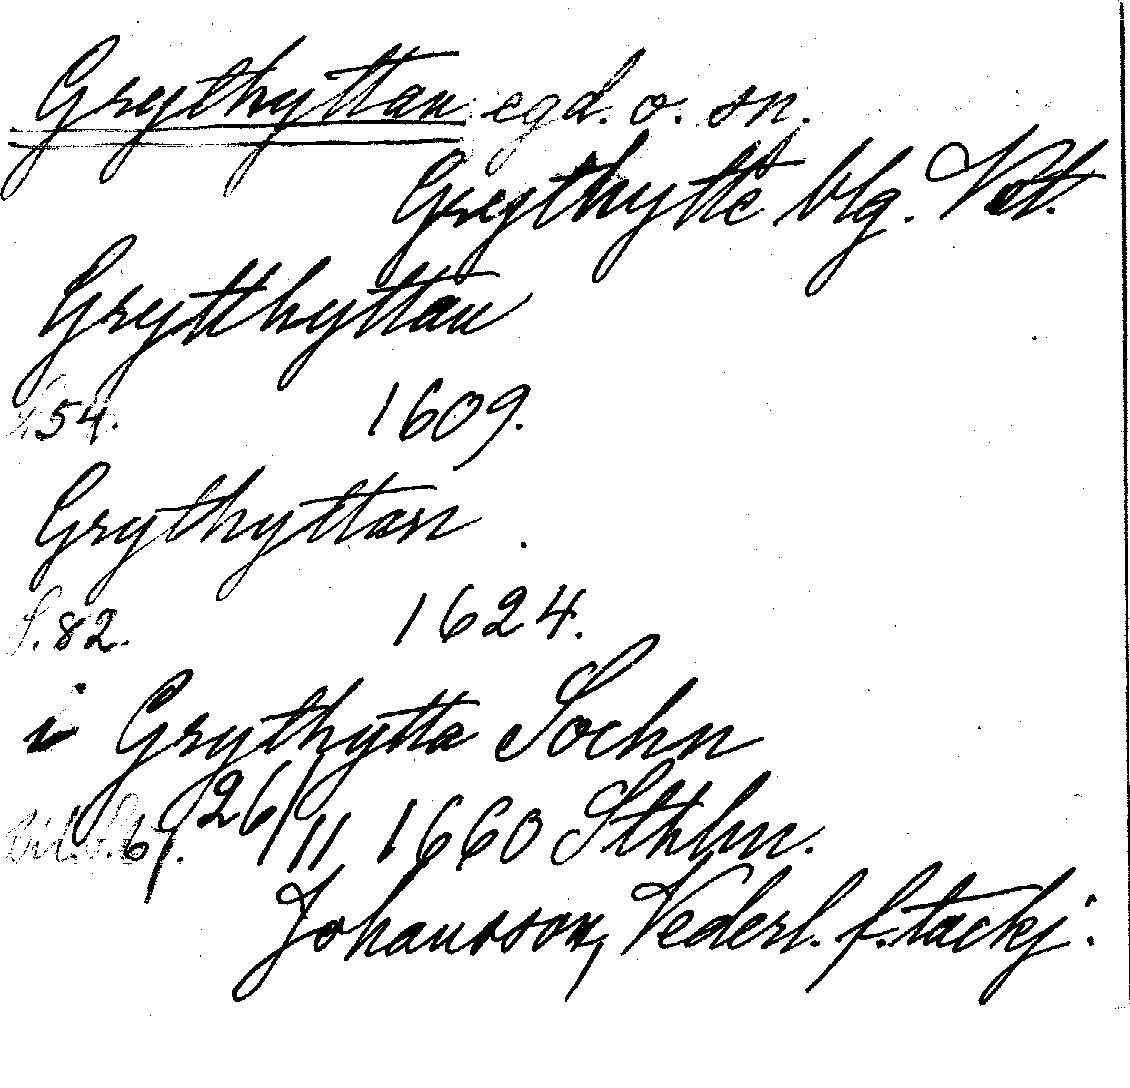 Grythyttan egd. o. sn.
Grythytte blg. Vstm.
Grytthyttan
s. 54. 1609.
Grythyttan
s. 82. 1624.
i Grythytta Sochn
Bil. s. 67. 26/11 1660 Sthlm.
Johansson, Vederl. f. tackj.